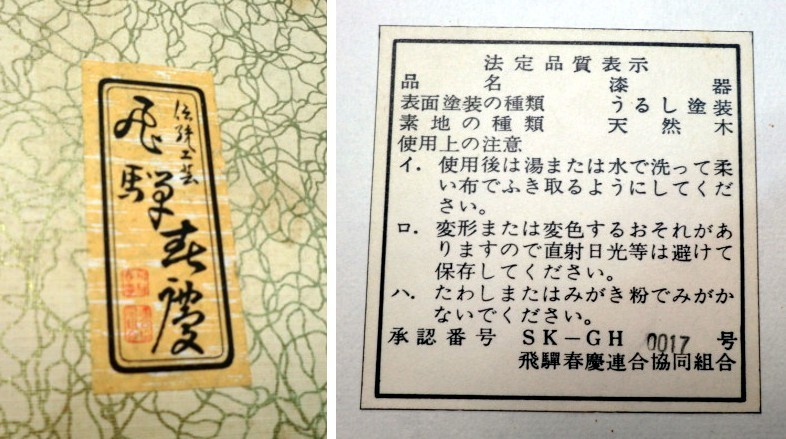 伝統工芸
飛騨春慶
法定品質表示
品名 漆器
表面塗装の種類 うるし塗装
素地の種類 天然木
使用上の注意
イ. 使用後は湯または水で洗って柔
い布でふき取るようにしてくだ
さい。
ロ. 変形または変色するおそれがあ
りますので直射日光等は避けて
保存してください。
ハ. たわしまたはみがき粉でみがか
ないでください。
承認番号 SK-GH 0017 号
飛騨春慶連合協同組合